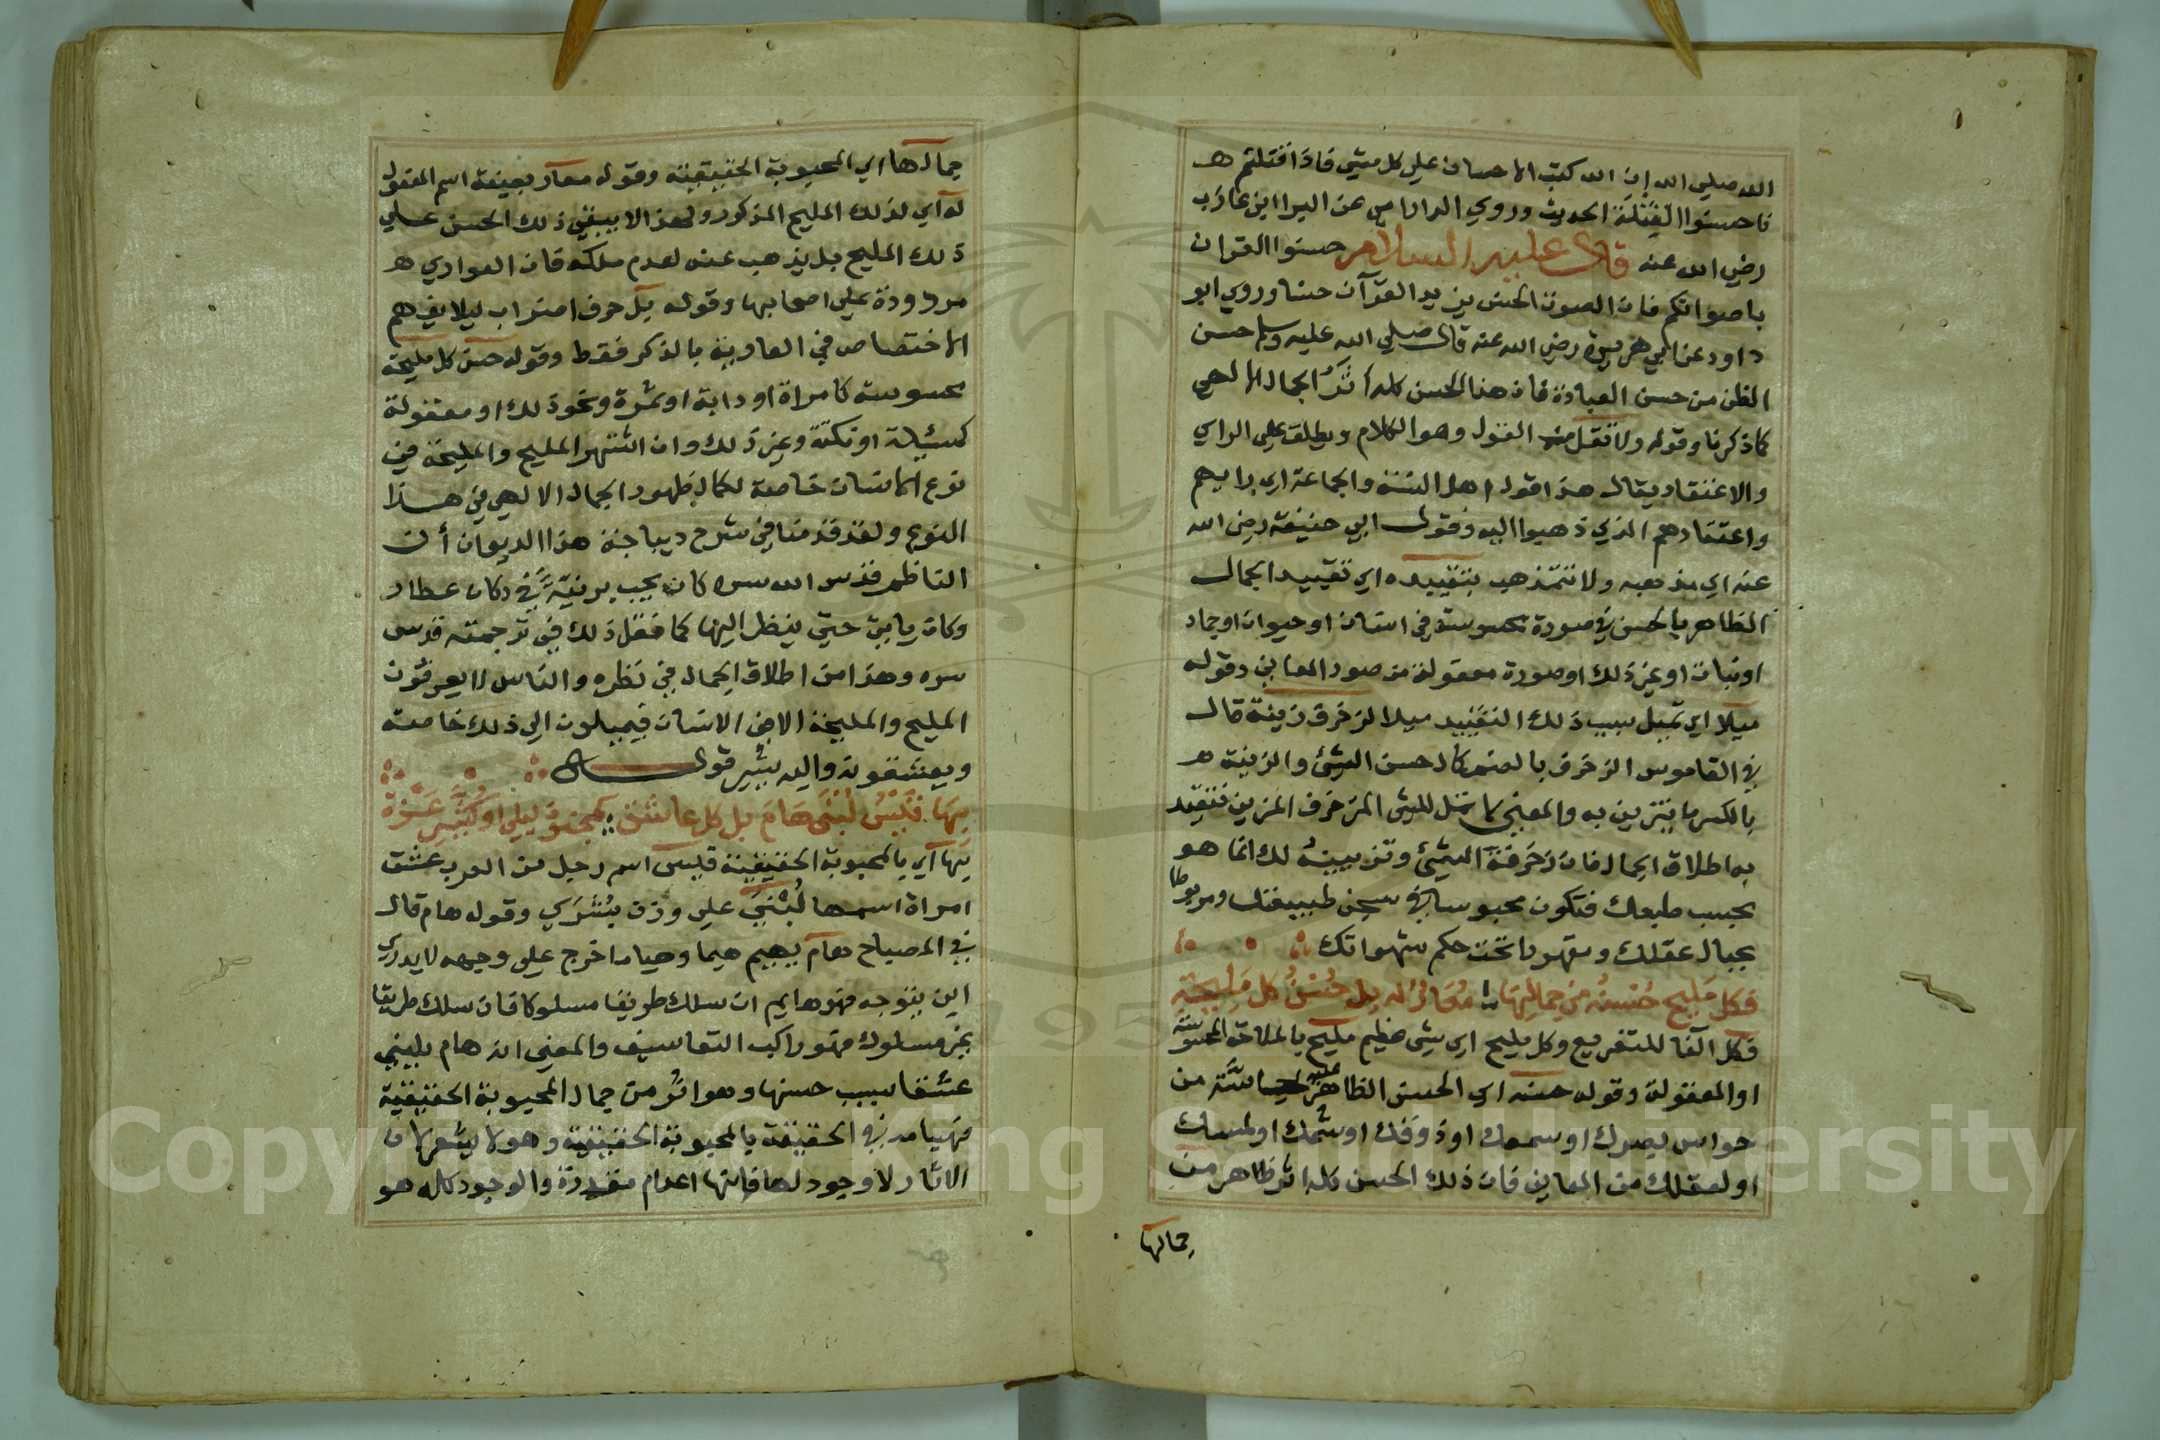 الله صلي الله إن الله كتب الاحسان علي كل شي فاذا قتلتم هـ
فاحسنوا القتلة الحديث وروي الدارامي عن البراابن عازب
رضي الله عنه قال عليه السلام حسنوا القران
باصواتكم فان الصوت الحسن يزيد القرآن حسنا وروي ابو
داود عن ابي هريرة رضي الله عنه قال صلي الله عليه وسلم حسن
الظن من حسن العبادة فان هذا الحسن كله اثر الجمال الالهي
كما ذكرنا وقوله ولا تقل من القول وهو الكلام ويطلق علي الراي
والاعتقاد يقال هذا قول اهل السنة والجماعة اي رايهم
واعتقادهم الذي ذهبوا اليه وقول ابي حنيفة رضي الله
عنه اي مذهبه ولا تتمذهب بتقييده اي تقييد الجمال
الظاهر بالحسن في صورة محسوسة في انسان او حيوان او جماد
او نبات او غير ذلك او صورة معقولة من صور المعاني وقوله
ميلا اي تميل سبب ذلك التقييد ميلا لزخرف زينة قال
في القاموس الزخرف بالضم كمال حسن الشئ والزينة هـ
بالكسر ما يتزين به والمعني لا تمل للشي المزخرف المزين فتقيد
به اطلاق الجمال فان زخرفة الشئ وتزيينه لك انما هو
بحسب طبعك فتكون محبوسا في سجن طبيعتك ومربوطا
بحبال عقلك ومقهورا تحت حكم شهواتك
فكل مليح حسنه من جمالها معار له بل حسن كل مليحة
فكل الفا للتفريع وكل مليح اي شي عظيم مليح بالملاحة المحسوسة
او المعقولة وقوله حسنه اي الحسن الظاهر عليه حاسة من
حواس بصرك او سمعك او ذوقك او شمك او لمسك
او لعقلك من المعاني فان ذلك الحسن كله اثر ظاهر من
جمالها
جمالها اي المحبوبة الحقيقية وقوله معار بصيغة اسم المفعول
له اي لذلك المليح المذكور ولهذا لا يبقي ذلك الحسن علي
ذلك المليح بل يذهب عنه لعدم ملكه فان العواري هـ
مردودة علي اصحابها وقوله بل حرف اضراب ليلا يفهم
الاختصاص في العارية بالذكر فقط وقوله حسن كل مليحة
محسوسة كامراة او دابة او ثمرة ونحو ذلك او معقولة
كمسئلة او نكتة وغير ذلك وان اشتهر المليح والمليحة في
نوع الانسان خاصة لكمال ظهور الجمال الالهي في هذا
النوع ولقد قدمنا في شرح ديباجة هذا الديوان أن
الناظم قدس الله سره كان يحب برنية في دكان عطار
وكان ياتي حتي ينظر اليها كما فعل ذلك في ترجمته قدس
سره وهذا من اطلاق الجمال في نظره والناس لا يعرفون
المليح والمليحة الا في الانسان فيميلون الي ذلك خاصة
ويعشقونه واليه يشير قوله
بها قيس لبني هام بل كل عاشق كمجنون ليلي او كثير عزة
بها اي بالمحبوبة الحقيقية قيس اسم رجل من العرب عشق
امراة اسمها لبني علي وزن بشري وقوله هام قال
في المصباح هام يهيم هيما وهياما خرج علي وجهه لا يدري
اين يتوجه فهو هايم ان سلك طريقا مسلوكا فان سلك طريقا
غير مسلوك فهو راكب التعاسيف والمعني انه هام بلبني
عشقا بسبب حسنها وهو اثر من جمال المحبوبة الحقيقية
فهيامه في الحقيقة بالمحبوبة الحقيقية وهو لا يشعر لان
الاثار لا وجود لها فانها اعدام مقدرة والوجود كله هو
Copyright © King Saud University